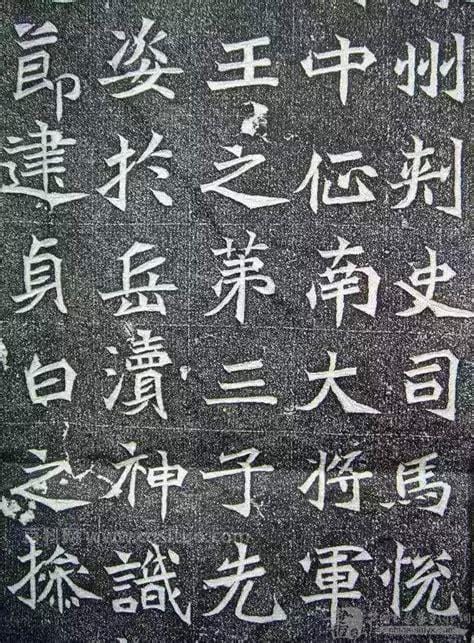 州刺史司馬悅
中征南大將軍
王之第三子先
姿於岳瀆神識
節建貞白之操